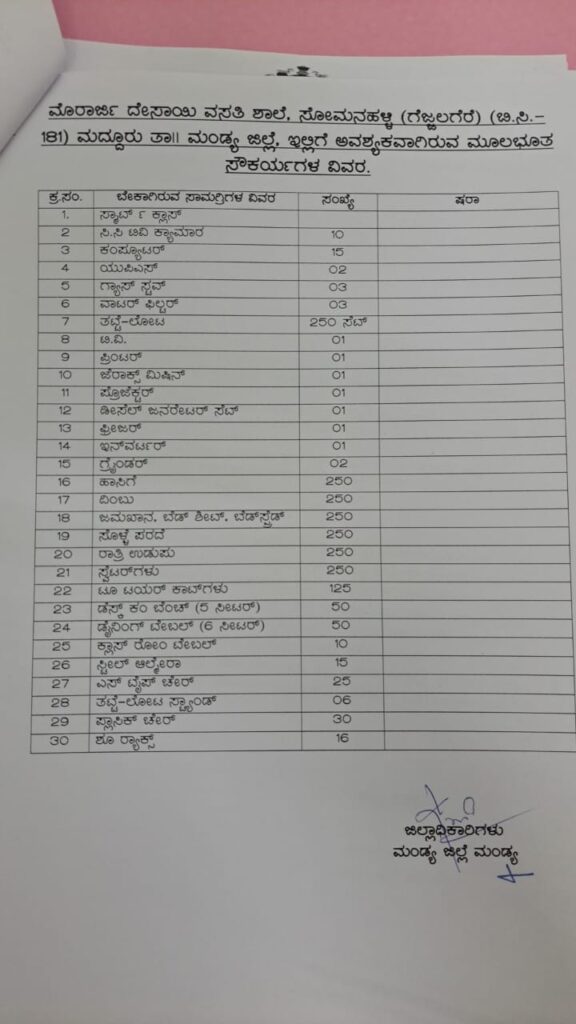 ಮೊರಾರ್ಜಿ ದೇಸಾಯಿ ವಸತಿ ಶಾಲೆ, ಸೋಮನಹಳ್ಳಿ (ಗೆಜ್ಜಲಗೆರೆ) (ಬಿ.ಸಿ.-
181) ಮದ್ದೂರು ತಾ|| ಮಂಡ್ಯ ಜಿಲ್ಲೆ, ಇಲ್ಲಿಗೆ ಅವಶ್ಯಕವಾಗಿರುವ ಮೂಲಭೂತ
ಸೌಕರ್ಯಗಳ ವಿವರ.
ಕ್ರ.ಸಂ. ಬೇಕಾಗಿರುವ ಸಾಮಗ್ರಿಗಳ ವಿವರ ಸಂಖ್ಯೆ ಷರಾ
1. ಸ್ಮಾರ್ಟ್ ಕ್ಲಾಸ್
2 ಸಿ.ಸಿ ಟಿವಿ ಕ್ಯಾಮಾರ 10
3 ಕಂಪ್ಯೂಟರ್ 15
4 ಯುಪಿಎಸ್ 02
5 ಗ್ಯಾಸ್ ಸ್ಟವ್ 03
6 ವಾಟರ್ ಫಿಲ್ಟರ್ 03
7 ತಟ್ಟೆ-ಲೋಟ 250 ಸೆಟ್
8 ಟಿ.ವಿ. 01
9 ಪ್ರಿಂಟರ್ 01
10 ಜೆರಾಕ್ಸ್ ಮಿಷಿನ್ 01
11 ಪ್ರೊಜೆಕ್ಟರ್ 01
12 ಡೀಸೆಲ್ ಜನರೇಟರ್ ಸೆಟ್ 01
13 ಫ್ರೀಜರ್ 01
14 ಇನ್‌ವರ್ಟರ್ 01
15 ಗ್ರೈಂಡರ್ 02
16 ಹಾಸಿಗೆ 250
17 ದಿಂಬು 250
18 ಜಮಖಾನ, ಬೆಡ್ ಶೀಟ್, ಬೆಡ್‌ಸ್ಪ್ರೆಡ್ 250
19 ಸೊಳ್ಳೆ ಪರದೆ 250
20 ರಾತ್ರಿ ಉಡುಪು 250
21 ಸ್ವೆಟರ್‌ಗಳು 250
22 ಟೂ ಟಯರ್ ಕಾಟ್‌ಗಳು 125
23 ಡೆಸ್ಕ್ ಕಂ ಬೆಂಚ್ (5 ಸೀಟರ್) 50
24 ಡೈನಿಂಗ್ ಟೇಬಲ್ (6 ಸೀಟರ್) 50
25 ಕ್ಲಾಸ್ ರೋಂ ಟೇಬಲ್ 10
26 ಸ್ಟೀಲ್ ಆಲ್ಮೇರಾ 15
27 ಎಸ್ ಟೈಪ್ ಚೇರ್ 25
28 ತಟ್ಟೆ-ಲೋಟ ಸ್ಟ್ಯಾಂಡ್ 06
29 ಪ್ಲಾಸಿಕ್ ಚೇರ್ 30
30 ಶೂ ರ‍್ಯಾಕ್ಸ್ 16
ಜಿಲ್ಲಾಧಿಕಾರಿಗಳು
ಮಂಡ್ಯ ಜಿಲ್ಲೆ ಮಂಡ್ಯ